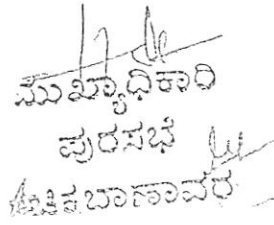 ಮುಖ್ಯಾಧಿಕಾರಿ
ಪುರಸಭೆ
ಚಿಕ್ಕಬಾಣಾವರ